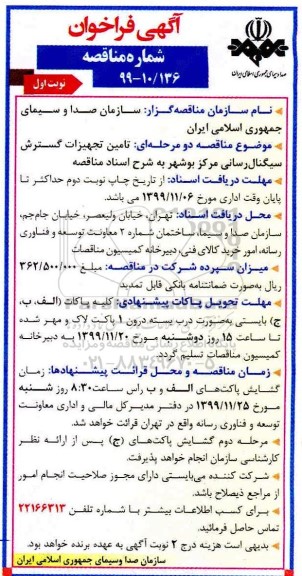 آگهی فراخوان
شماره مناقصه
۹۹-۱۰/۱۳۶
نوبت اول
صدا و سیمای جمهوری اسلامی ایران
نام سازمان مناقصه‌گزار: سازمان صدا و سیمای
جمهوری اسلامی ایران
موضوع مناقصه دو مرحله‌ای: تامین تجهیزات گسترش
سیگنال‌رسانی مرکز بوشهر به شرح اسناد مناقصه
مهلت دریافت اسناد: از تاریخ چاپ نوبت دوم حداکثر تا
پایان وقت اداری مورخ ۱۳۹۹/۱۱/۰۶ می باشد.
محل دریافت اسناد: تهران، خیابان ولیعصر، خیابان جام‌جم،
سازمان صدا و سیما، ساختمان شماره ۲ معاونت توسعه و فناوری
رسانه، امور خرید کالای فنی، دبیرخانه کمیسیون مناقصات
میزان سپرده شرکت در مناقصه: مبلغ ۳۶۲/۵۰۰/۰۰۰
ریال به‌صورت ضمانتنامه بانکی قابل تمدید
مهلت تحویل پاکات پیشنهادی: کلیه پاکات (الف، ب،
ج) بایستی به‌صورت درب بسته درون ۱ پاکت لاک و مهر شده
تا ساعت ۱۵ روز دوشنبه مورخ ۱۳۹۹/۱۱/۲۰ به دبیرخانه
کمیسیون مناقصات تسلیم گردد.
زمان مناقصه و محل قرائت پیشنهادها: زمان
گشایش پاکت‌های الف و ب راس ساعت ۸:۳۰ روز شنبه
مورخ ۱۳۹۹/۱۱/۲۵ در دفتر مدیرکل مالی و اداری معاونت
توسعه و فناوری رسانه واقع در تهران قرائت خواهد شد.
مرحله دوم گشایش پاکت‌های (ج) پس از ارائه نظر
کارشناسی سازمان انجام خواهد پذیرفت.
شرکت کننده می‌بایستی دارای مجوز صلاحیت انجام امور
از مراجع ذیصلاح باشد.
برای کسب اطلاعات بیشتر با شماره تلفن ۲۲۱۶۶۳۱۳
تماس حاصل فرمائید.
بدیهی است هزینه درج ۲ نوبت آگهی به عهده برنده خواهد بود.
سازمان صدا وسیمای جمهوری اسلامی ایران